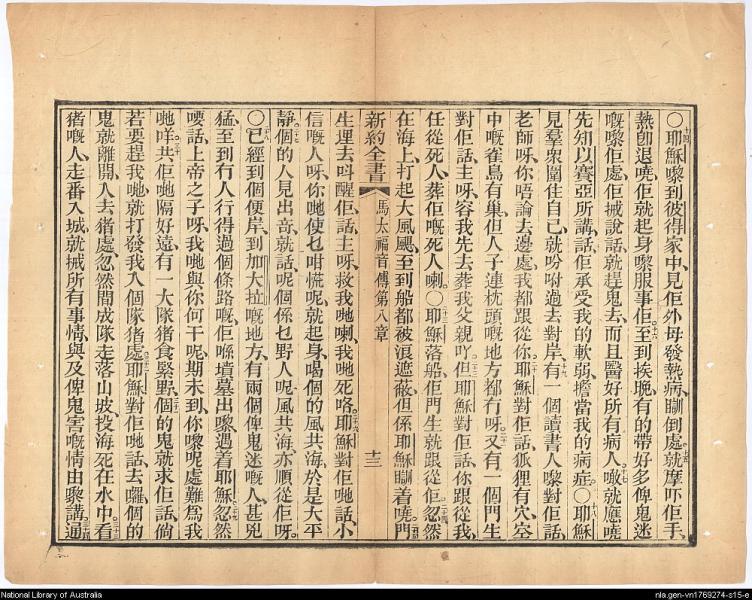 〇耶穌嚟到彼得家中、見佢外母發熱病、瞓倒處、就摩吓佢手、
熱卽退嘵、佢就起身、嚟服事佢、至到挨晚、有的帶好多俾鬼迷
嘅嚟佢處、佢揻說話就趕鬼去、而且醫好所有病人、噉就應嘵
先知以賽亞所講話、佢承受我的軟弱、擔當我的病症。〇耶穌
見羣衆圍住自己、就吩咐過去對岸、有一個讀書人嚟對佢話、
老師呀、你唔論去邊處、我都跟從你、耶穌對佢話、狐狸有穴、空
中嘅雀鳥有巢、但人子連枕頭嘅地方都冇呀、又有一個門生
對佢話、主呀、容我先去葬我父親吖、但耶穌對佢話、你跟從我、
任從死人葬佢嘅死人喇。〇耶穌落船、佢門生就跟從佢、忽然
在海上打起大風颶、至到船都被浪遮蔽、但係耶穌瞓着嘵、門
新約全書 馬太福音傳第八章 十三
生埋去呌醒佢、話、主呀、救我哋喇、我哋死咯、耶穌對佢哋話、小
信嘅人呀、你哋使乜咁慌呢、就起身、喝個的風共海、於是大平
靜、個的人見出奇、就話、呢個係乜野人呢、風共海亦順從佢呀。
〇已經到個便岸、到加大拉嘅地方、有兩個俾鬼迷嘅人、甚兇
猛、至到冇人行得過個條路嘅、佢喺墳墓出嚟、遇着耶穌、忽然
嗌話、上帝之子呀、我哋與你何干呢、期未到、你嚟呢處難爲我
哋咩、共佢哋隔好遠、有一大隊猪食緊野、個的鬼就求佢話、倘
若要趕我哋、就打發我入個隊猪處、耶穌對佢哋話、去囉、個的
鬼就離開人去猪處、忽然間成隊走落山坡、投海死在水中、看
猪嘅人、走番入城、就揻所有事情、與及俾鬼害嘅情由嚟講、通
National Library of Australia
nla.gen-vn1769274-s15-e